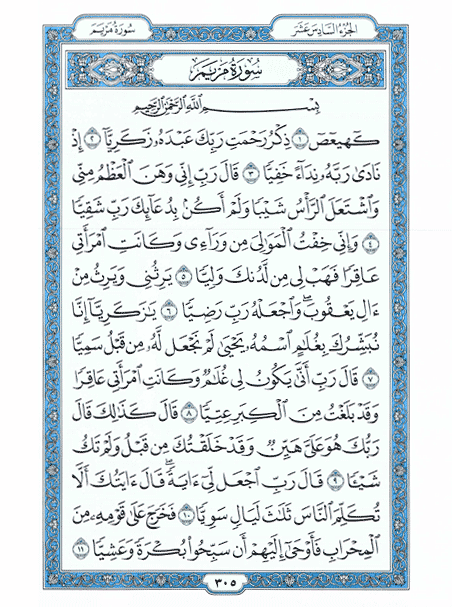 الجزء السادس عشر
سورة مريم
سورة مريم
بسم الله الرحمن الرحيم
كهيعص ١ ذِكْرُ رَحْمَتِ رَبِّكَ عَبْدَهُۥ زَكَرِيَّآ ٢ إِذْ
نَادَىٰ رَبَّهُۥ نِدَآءً خَفِيًّا ٣ قَالَ رَبِّ إِنِّى وَهَنَ ٱلْعَظْمُ مِنِّى
وَٱشْتَعَلَ ٱلرَّأْسُ شَيْبًا وَلَمْ أَكُنۢ بِدُعَآئِكَ رَبِّ شَقِيًّا
٤ وَإِنِّى خِفْتُ ٱلْمَوَٰلِىَ مِن وَرَآءِى وَكَانَتِ ٱمْرَأَتِى
عَاقِرًا فَهَبْ لِى مِن لَّدُنكَ وَلِيًّا ٥ يَرِثُنِى وَيَرِثُ مِنْ
ءَالِ يَعْقُوبَ ۖ وَٱجْعَلْهُ رَبِّ رَضِيًّا ٦ يَٰزَكَرِيَّآ إِنَّا
نُبَشِّرُكَ بِغُلَٰمٍ ٱسْمُهُۥ يَحْيَىٰ لَمْ نَجْعَل لَّهُۥ مِن قَبْلُ سَمِيًّا
٧ قَالَ رَبِّ أَنَّىٰ يَكُونُ لِى غُلَٰمٌ وَكَانَتِ ٱمْرَأَتِى عَاقِرًا
وَقَدْ بَلَغْتُ مِنَ ٱلْكِبَرِ عِتِيًّا ٨ قَالَ كَذَٰلِكَ قَالَ
رَبُّكَ هُوَ عَلَىَّ هَيِّنٌ وَقَدْ خَلَقْتُكَ مِن قَبْلُ وَلَمْ تَكُ
شَيْـًٔا ٩ قَالَ رَبِّ ٱجْعَل لِّىٓ ءَايَةً ۚ قَالَ ءَايَتُكَ أَلَّا
تُكَلِّمَ ٱلنَّاسَ ثَلَٰثَ لَيَالٍ سَوِيًّا ١٠ فَخَرَجَ عَلَىٰ قَوْمِهِۦ مِنَ
ٱلْمِحْرَابِ فَأَوْحَىٰٓ إِلَيْهِمْ أَن سَبِّحُوا۟ بُكْرَةً وَعَشِيًّا ١١
٣٠٥